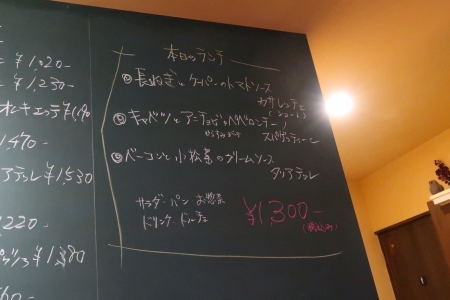 ¥1,020-
¥1,230-
オレキエッテ
,470-
アテッレ ¥1,530
,220-
¥1,380
本日のランチ
Ⓐ 長ねぎとケーパーのトマトソース
カサレッチェ
(ショート)
Ⓑ キャベツとアンチョビのペペロンチーノ
スパゲッティーニ
Ⓒ ベーコンと小松菜のクリームソース
タリアテッレ
サラダ・パン お惣菜
ドリンク・ドルチェ
¥1,300-
(税込み)